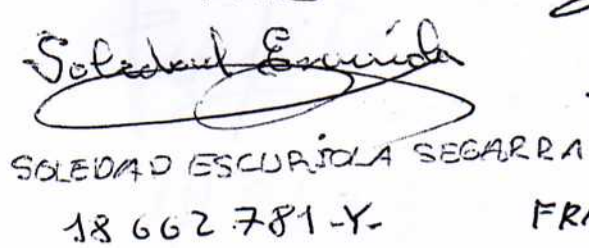 Soledad Escuriola
SOLEDAD ESCURIOLA SEGARRA
18 662.781-Y- FRA